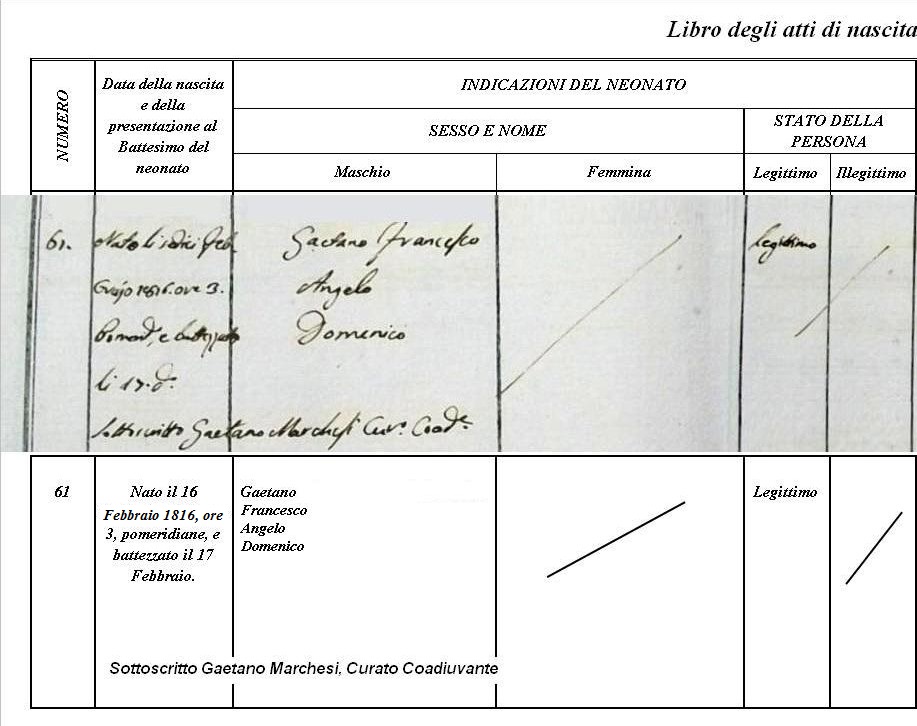 Libro degli atti di nascita
NUMERO
Data della nascita
e della
presentazione al
Battesimo del
neonato
INDICAZIONI DEL NEONATO
SESSO E NOME
STATO DELLA
PERSONA
Maschio
Femmina
Legittimo
Illegittimo
61.
Nato li sedici Feb
Grajo 1816. ore 3.
Pomed, e battezzato
li 17. do:
Gaetano Francesco
Angelo
Domenico
Legittimo
Sottoscritto Gaetano Marchesi Curo. Coade.
61
Nato il 16
Febbraio 1816, ore
3, pomeridiane, e
battezzato il 17
Febbraio.
Gaetano
Francesco
Angelo
Domenico
Legittimo
Sottoscritto Gaetano Marchesi, Curato Coadiuvante